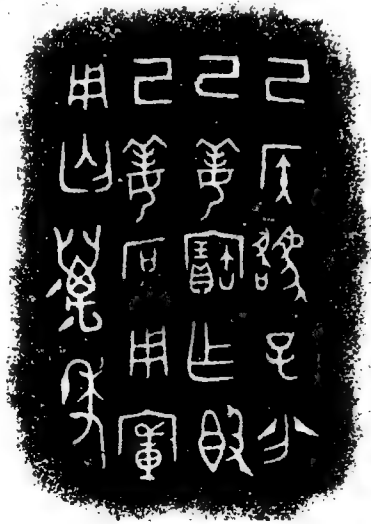 己侯貉子分
己姜寶乍𣪘
己姜石用
用匄萬年